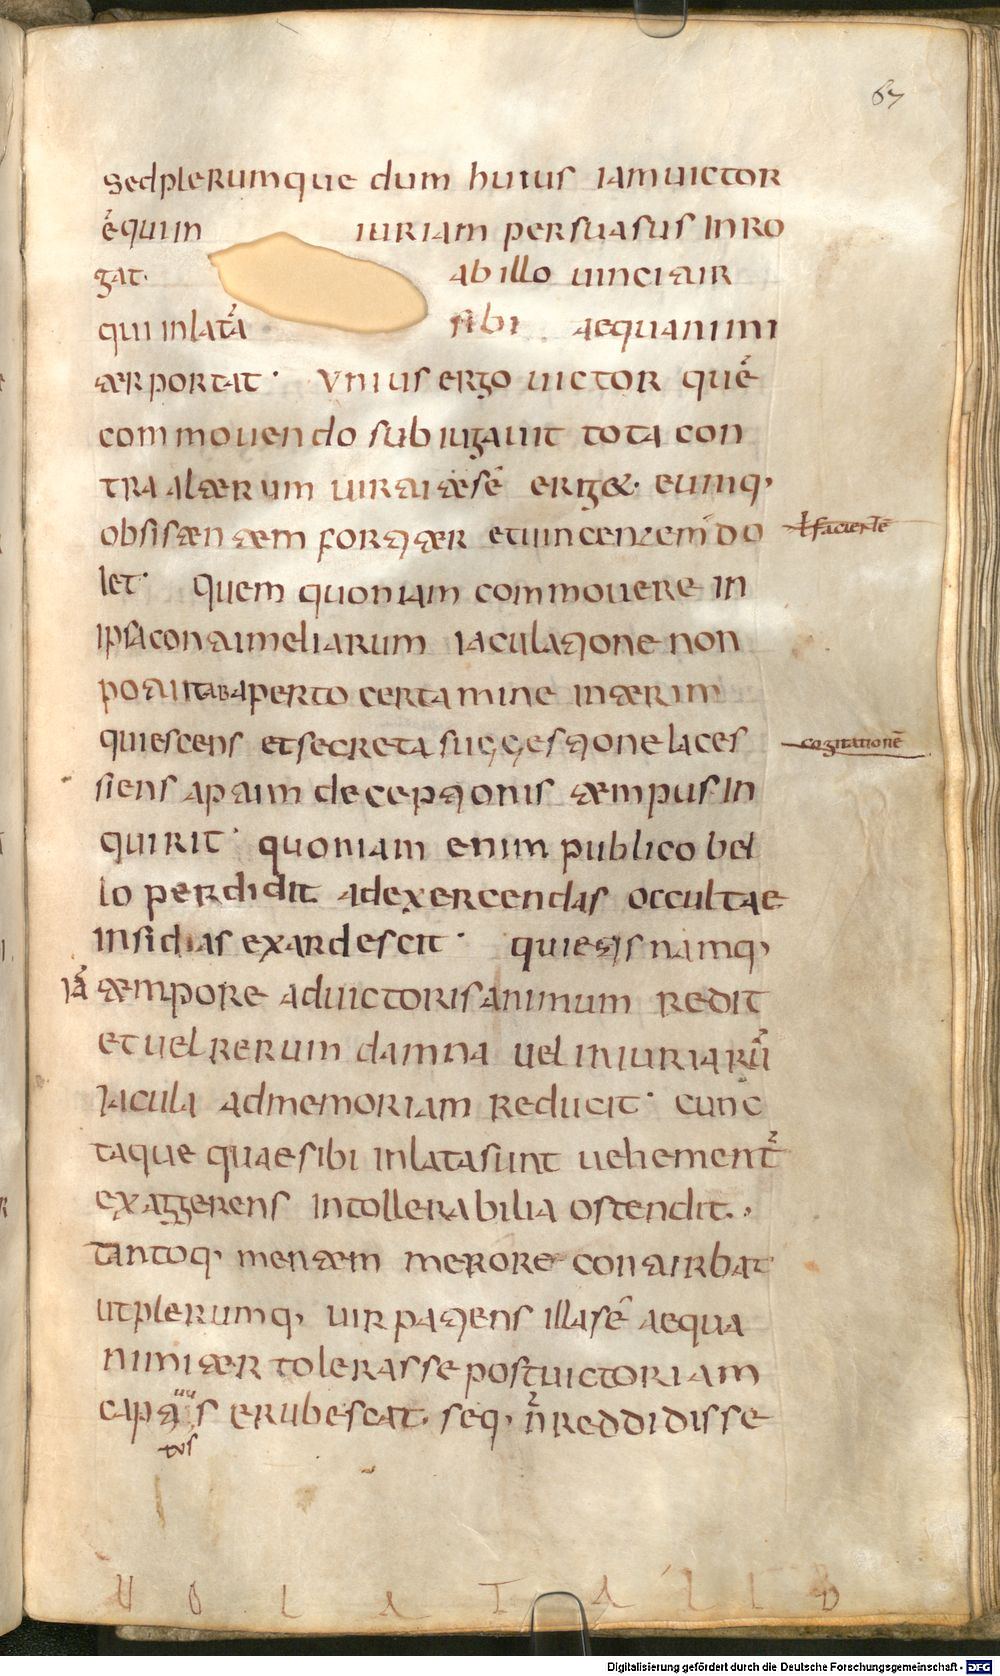 67
sed plerumque dum huius iam uictor
ē qui in iuriam persuasus inro
gat· ab illo uinciair
qui inlatā sibi aequanimi
ter portat· Vnius ergo uictor quē
commouendo subiugauit tota con
tra alterum uirtutesē eriget· eumq·
obsistentem fortiter et uincentem do
ł facientē
let· Quem quoniam commouere in
ipsa contimeliarum iaculatione non
potuit ab aperto certamine interim
quiescens et secreta suggestione laces
cogitationē
siens aptum deceptionis tempus in
quirit· quoniam enim publico bel
lo perdidit ad exercendas occultae
insidias exardescit· quietis namq·
iā tempore ad uictoris animum redit
et uel rerum damna uel iniuriarū
iacula ad memoriam reducit· cunc
taque quae sibi inlata sunt uehement
exaggerens intollerabilia ostendit·
tantoq· mentem merore conturbat
ut plerumq· uir patiens illa sē aequa
nimiter tolerasse post uictoriam
captus erubescat· seq· n̄ reddidisse
tus
U O L A T I L L
Digitalisierung gefördert durch die Deutsche Forschungsgemeinschaft - DFG